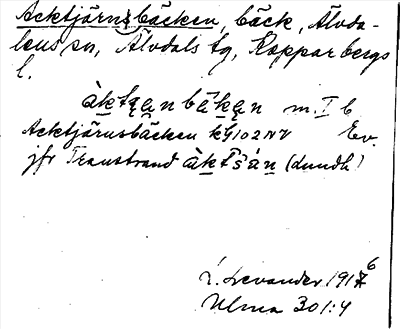 Acktjärnsbäcken, bäck, Älvda-
lens sn, Älvdals tg, Kopparbergs
l.
àktţan bäkan m. I b
Acktjärnsbäcken kg 102 NV Ev.
jfr Transtrand àktšán (Lundh)
L. Levander 1916
Ulma 301:4